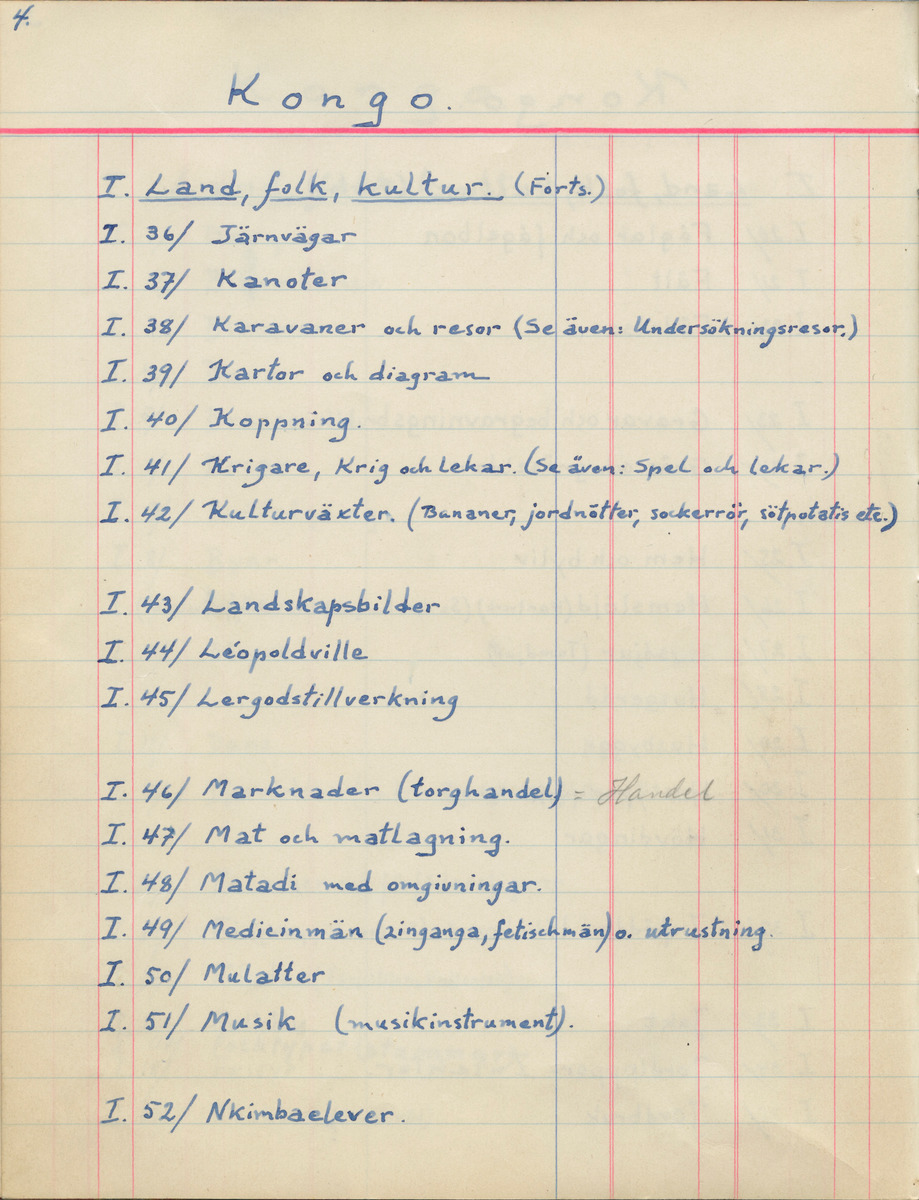 4.
Kongo.
I. Land, folk, kultur. (Forts.)
I. 36/ Järnvägar
I. 37/ Kanoter
I. 38/ Karavaner och resor (Se även: Undersökningsresor.)
I. 39/ Kartor och diagram
I. 40/ Koppning.
I. 41/ Krigare, Krig och lekar. (Se även: Spel och lekar.)
I. 42/ Kulturväxter. (Bananer, jordnötter, sockerrör, sötpotatis etc.)
I. 43/ Landskapsbilder
I. 44/ Léopoldville
I. 45/ Lergodstillverkning
I. 46/ Marknader (torghandel) = Handel
I. 47/ Mat och matlagning.
I. 48/ Matadi med omgivningar.
I. 49/ Medicinmän (zinganga, fetischmän) o. utrustning.
I. 50/ Mulatter
I. 51/ Musik (musikinstrument).
I. 52/ Nkimbaelever.